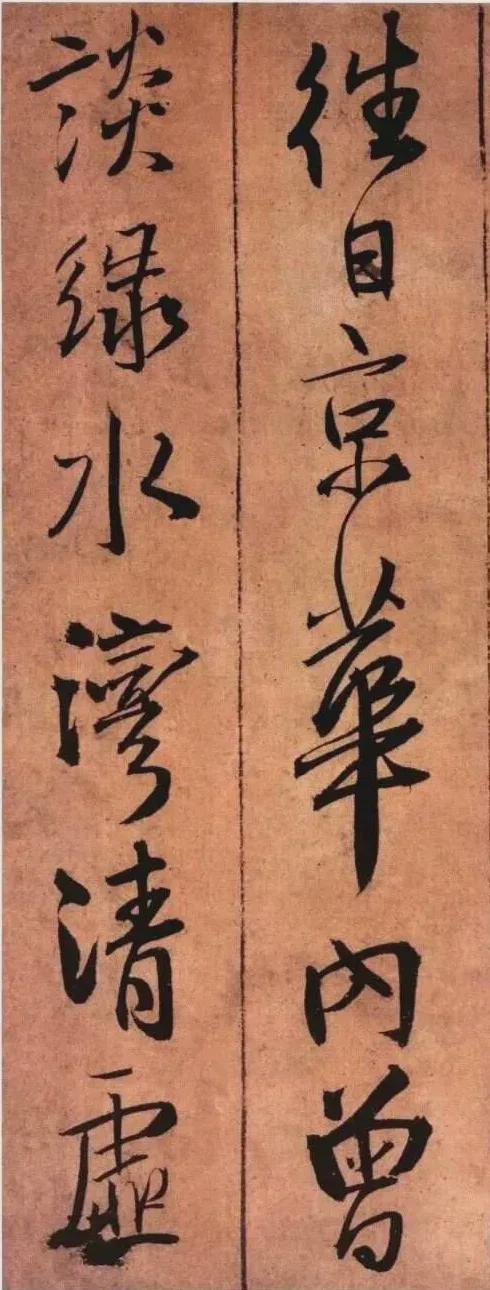 往日京華内曾
談綠水灣清虛